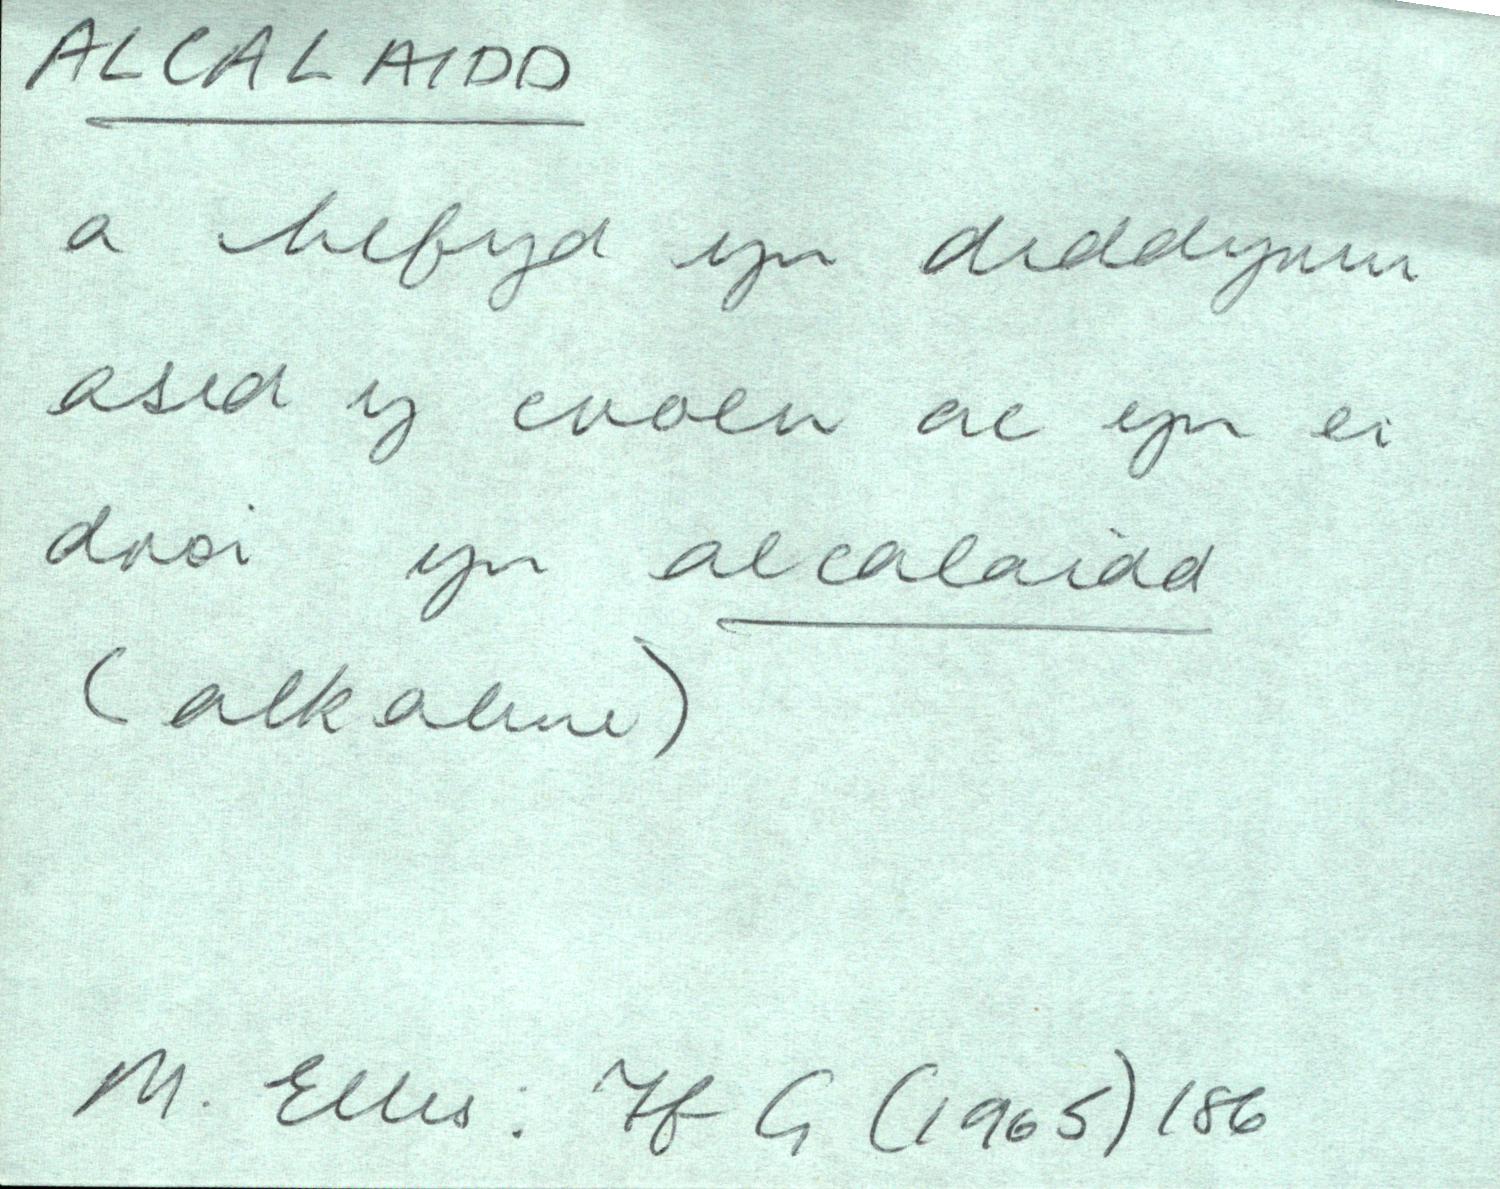 ALCALAIDD
a hefyd yn diddymu
asid y croen ac yn ei
droi yn alcalaidd
(alkaline)
M. Ellis: Yf G (1965) 186